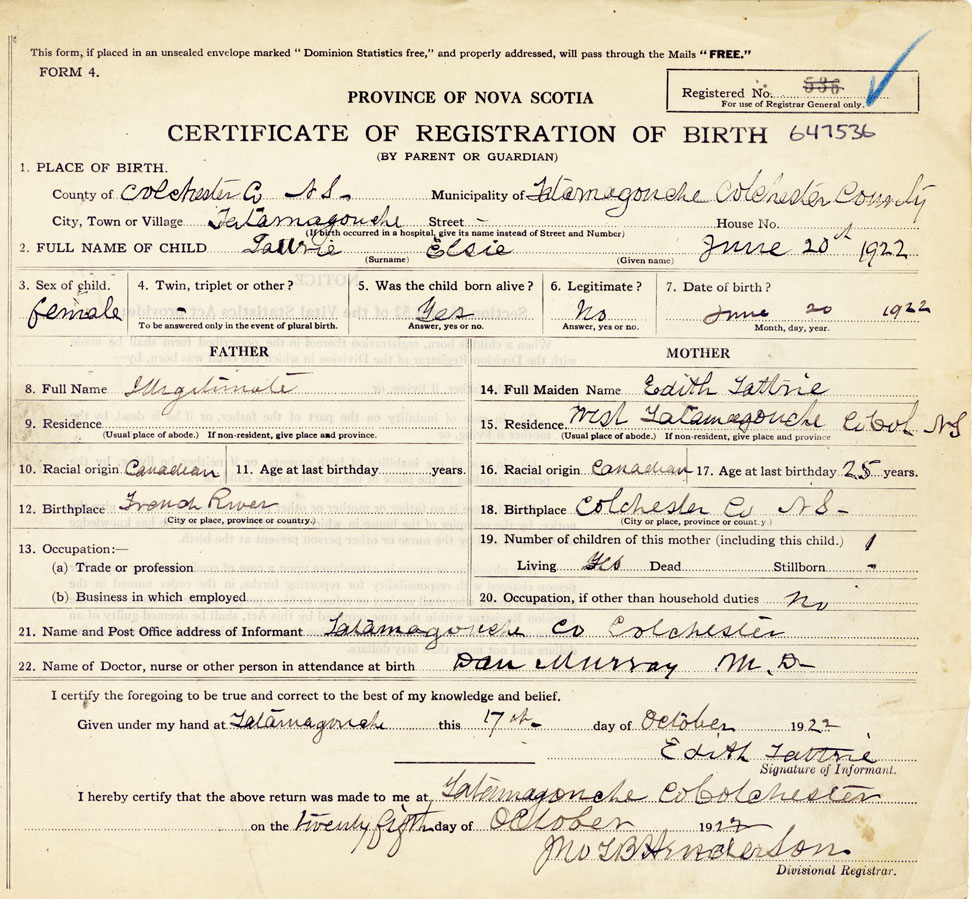 This form, if placed in an unsealed envelope marked “Dominion Statistics free,” and properly addressed, will pass through the Mails “FREE.”
FORM 4.
Registered No. 536
For use of Registrar General only.
PROVINCE OF NOVA SCOTIA
CERTIFICATE OF REGISTRATION OF BIRTH 647536
(BY PARENT OR GUARDIAN)
1. PLACE OF BIRTH.
County of Colchester Co N S - Municipality of Tatamagouche Colchester County
City, Town or Village Tatamagouche Street - House No.
(If birth occurred in a hospital, give its name instead of Street and Number)
2. FULL NAME OF CHILD Tattrie Elsie June 20th 1922
(Surname) (Given name)
3. Sex of child. 4. Twin, triplet or other? 5. Was the child born alive? 6. Legitimate? 7. Date of birth?
female - Yes No June 20 1922
To be answered only in the event of plural birth. Answer, yes or no. Answer, yes or no. Month, day, year.
FATHER
8. Full Name Illegitimate
9. Residence
(Usual place of abode.) If non-resident, give place and province.
10. Racial origin Canadian 11. Age at last birthday years.
12. Birthplace French River
(City or place, province or country.)
13. Occupation:—
(a) Trade or profession
(b) Business in which employed
MOTHER
14. Full Maiden Name Edith Tattrie
15. Residence West Tatamagouche Co Col NS
(Usual place of abode.) If non-resident, give place and province
16. Racial origin Canadian 17. Age at last birthday 25 years.
18. Birthplace Colchester Co N S -
(City or place, province or count.y.)
19. Number of children of this mother (including this child.) 1
Living Yes Dead Stillborn -
20. Occupation, if other than household duties No
21. Name and Post Office address of Informant Tatamagouche Co Colchester
22. Name of Doctor, nurse or other person in attendance at birth Dan Murray M.D-
I certify the foregoing to be true and correct to the best of my knowledge and belief.
Given under my hand at Tatamagouche this 17th day of October 1922
Edith Tattrie
Signature of Informant.
I hereby certify that the above return was made to me at Tatamagouche Co Colchester
on the twenty fifth day of October 1922
Henderson
Divisional Registrar.